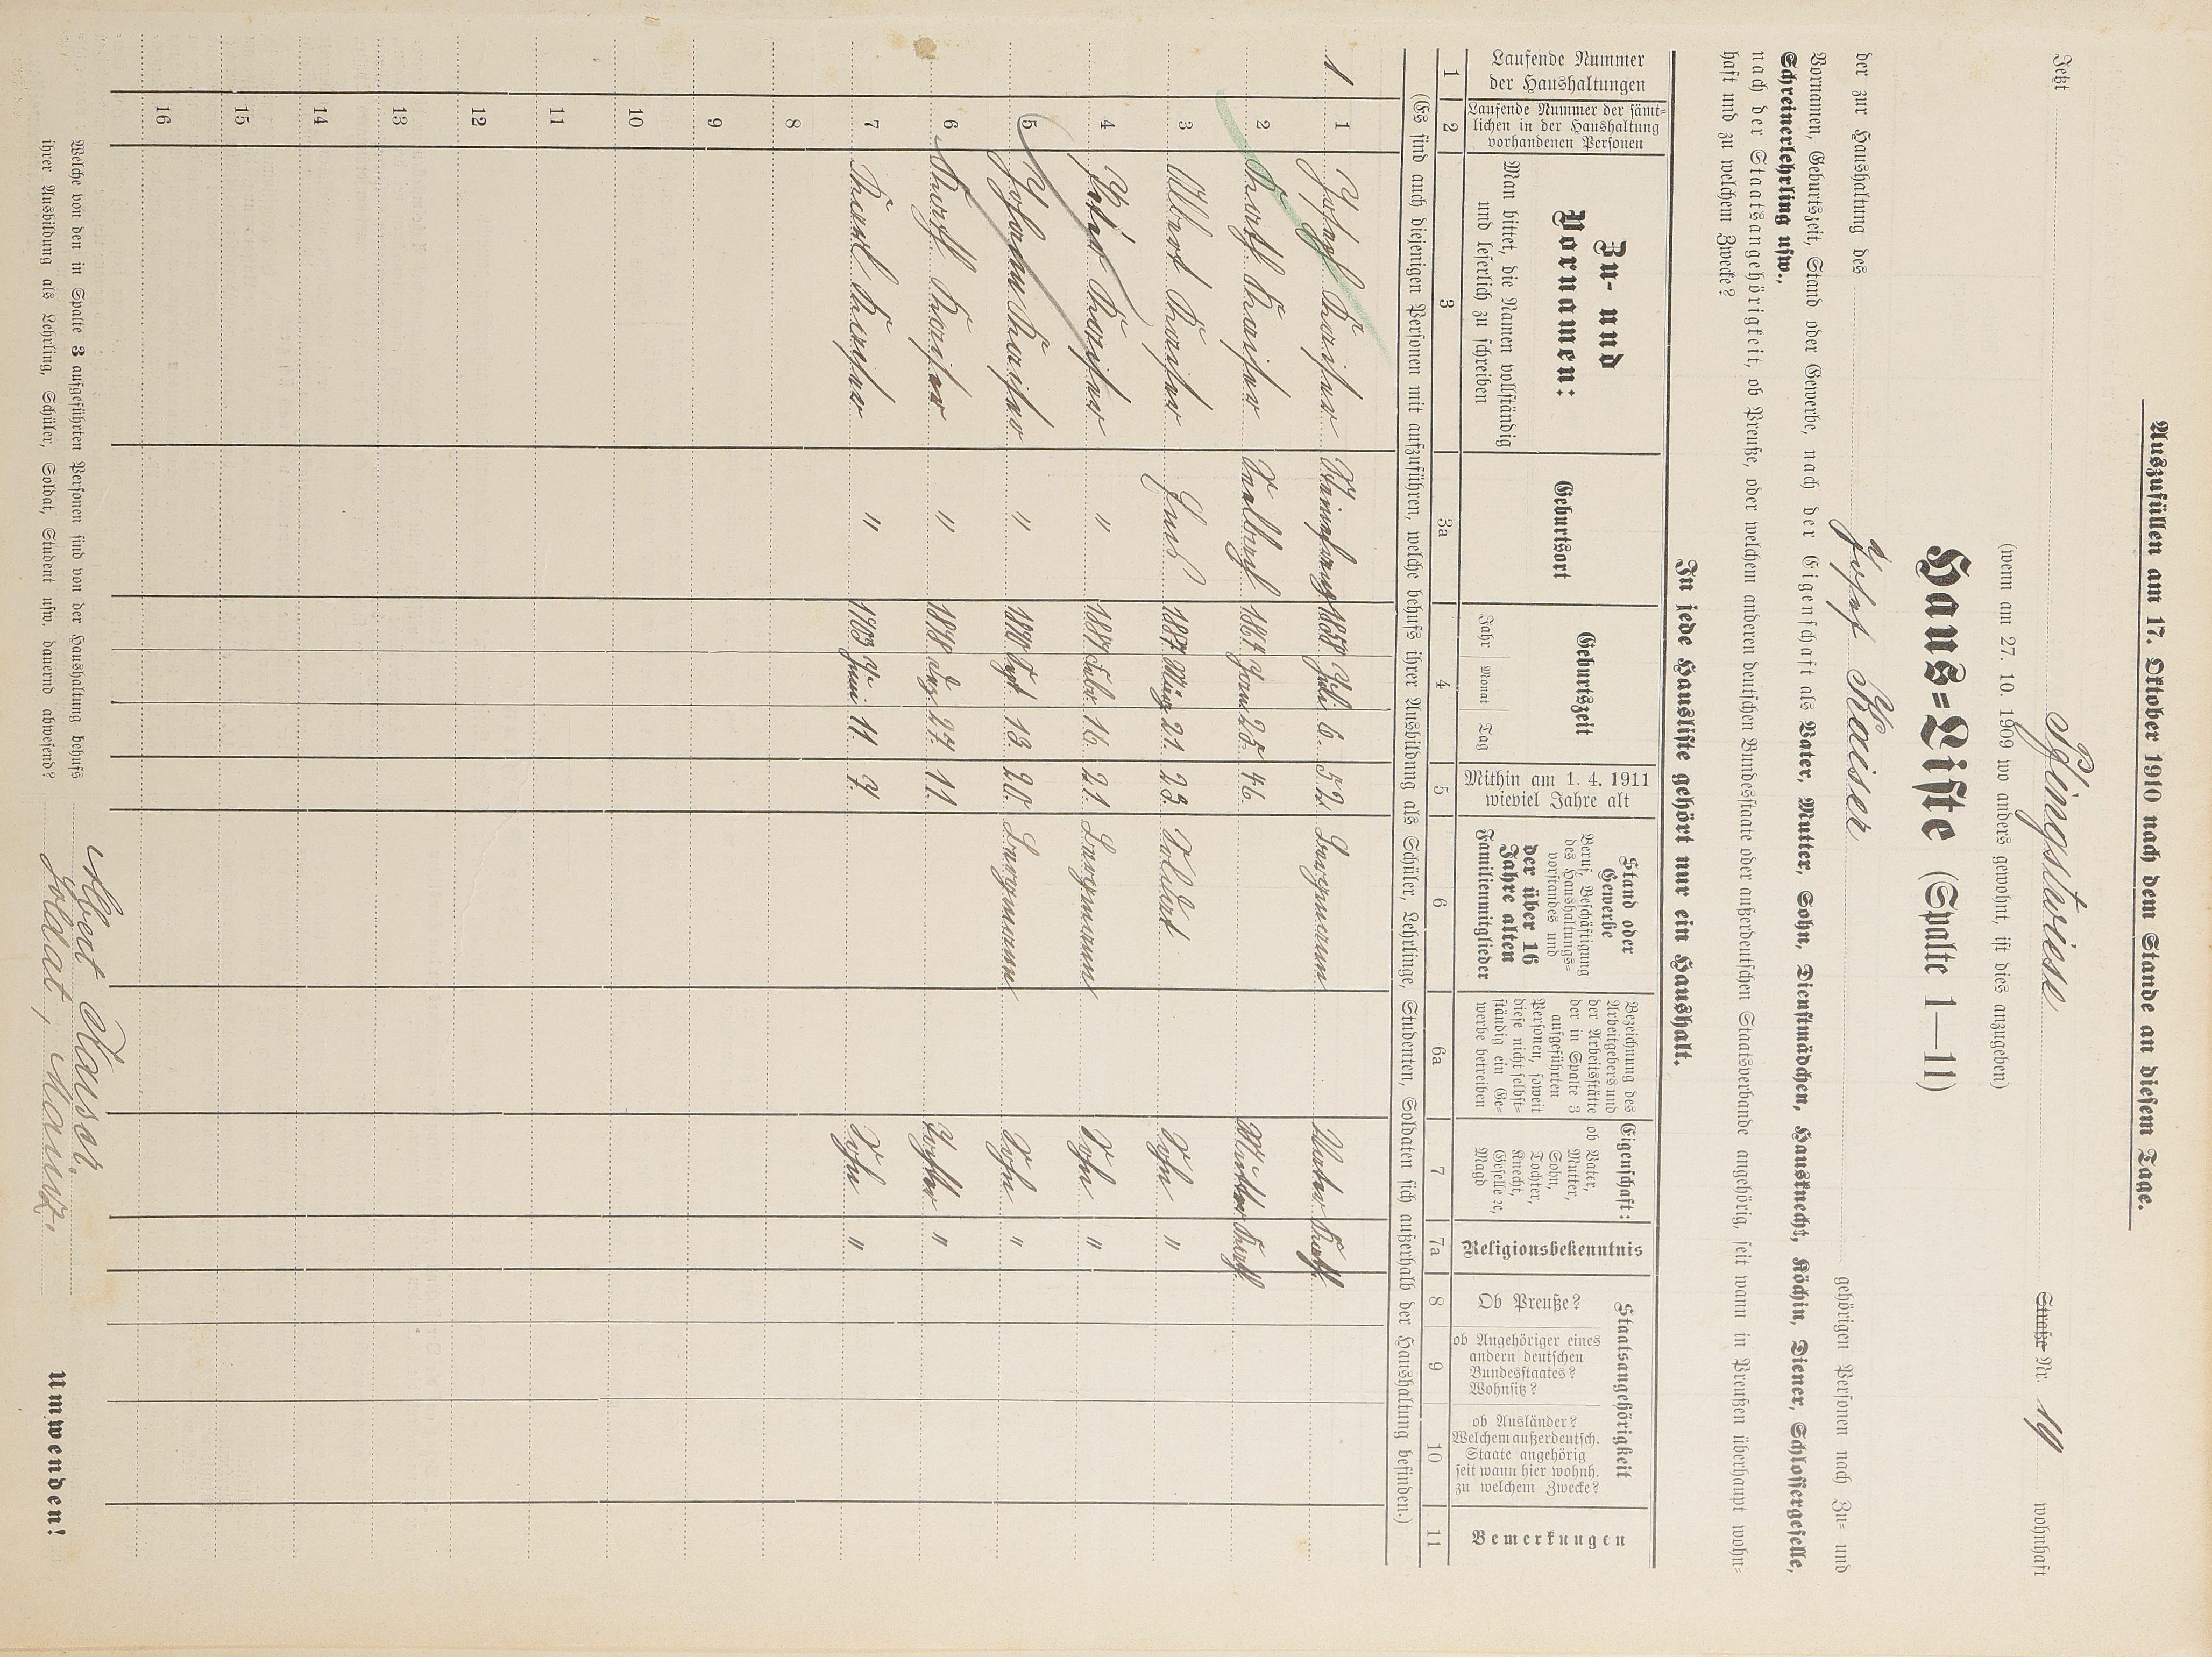 Auszufüllen am 17. Oktober 1910 nach dem Stande an diesem Tage.
Jetzt Pfingstwiese Straße Nr. 19 wohnhaft
(wenn am 27. 10. 1909 wo anders gewohnt, ist dies anzugeben)
Haus=Liste (Spalte 1—11)
der zur Haushaltung des Josef Kaiser gehörigen Personen nach Zu= und
Vornamen, Geburtszeit, Stand oder Gewerbe, nach der Eigenschaft als Vater, Mutter, Sohn, Dienstmädchen, Hausknecht, Köchin, Diener, Schlossergeselle,
Schreinerlehrling usw.,
nach der Staatsangehörigkeit, ob Preuße, oder welchem anderen deutschen Bundesstaate oder außerdeutschen Staatsverbande angehörig, seit wann in Preußen überhaupt wohn=
haft und zu welchem Zwecke?
In jede Hausliste gehört nur ein Haushalt.
Laufende Nummer
der Haushaltungen
Laufende Nummer der sämt=
lichen in der Haushaltung
vorhandenen Personen
Zu- und
Vornamen:
Man bittet, die Namen vollständig
und leserlich zu schreiben
Geburtsort
Geburtszeit
Jahr Monat Tag
Mithin am 1. 4. 1911
wieviel Jahre alt
Stand oder
Gewerbe
Beruf, Beschäftigung
des Haushaltungs=
vorstandes und
der über 16
Jahre alten
Familienmitglieder
Bezeichnung des
Arbeitgebers und
der Arbeitsstätte
der in Spalte 3
aufgeführten
Personen, soweit
diese nicht selbst=
ständig ein Ge=
werbe betreiben
Eigenschaft:
ob Vater,
Mutter,
Sohn,
Tochter,
Knecht,
Geselle ꝛc,
Magd
Religionsbekenntnis
Staatsangehörigkeit
Ob Preuße?
ob Angehöriger eines
andern deutschen
Bundesstaates?
Wohnsitz?
ob Ausländer?
Welchem außerdeutsch.
Staate angehörig
seit wann hier wohnh.
zu welchem Zwecke?
Bemerkungen
1 2 3 3a 4 5 6 6a 7 7a 8 9 10 11
(Es sind auch diejenigen Personen mit aufzuführen, welche behufs ihrer Ausbildung als Schüler, Lehrlinge, Studenten, Soldaten sich außerhalb der Haushaltung befinden.)
1. 1 Josef Kaiser 1858 Juli 6. 52. Bergmann Vater Kath.
2 Kath. Kaiser 1864 Janu 25. 46. Mutter Kath.
3 Albert Kaiser Ems 1887 März 21. 23. Soldat Sohn "
4 Peter Kaiser " Febr. 16. 21. Bergmann Sohn "
5 Johann Kaiser " 1890 Sept. 13. 20. Bergmann Sohn "
6 Kaiser " 27. 11. Tochter "
7 Karl Kaiser " 1903 Juni 11 7. Sohn "
8
9
10
11
12
13
14
15
16
Welche von den in Spalte 3 aufgeführten Personen sind von der Haushaltung behufs Albert Kaiser.
ihrer Ausbildung als Lehrling, Schüler, Soldat, Student usw. dauernd abwesend? Soldat, Mainz.
Umwenden!